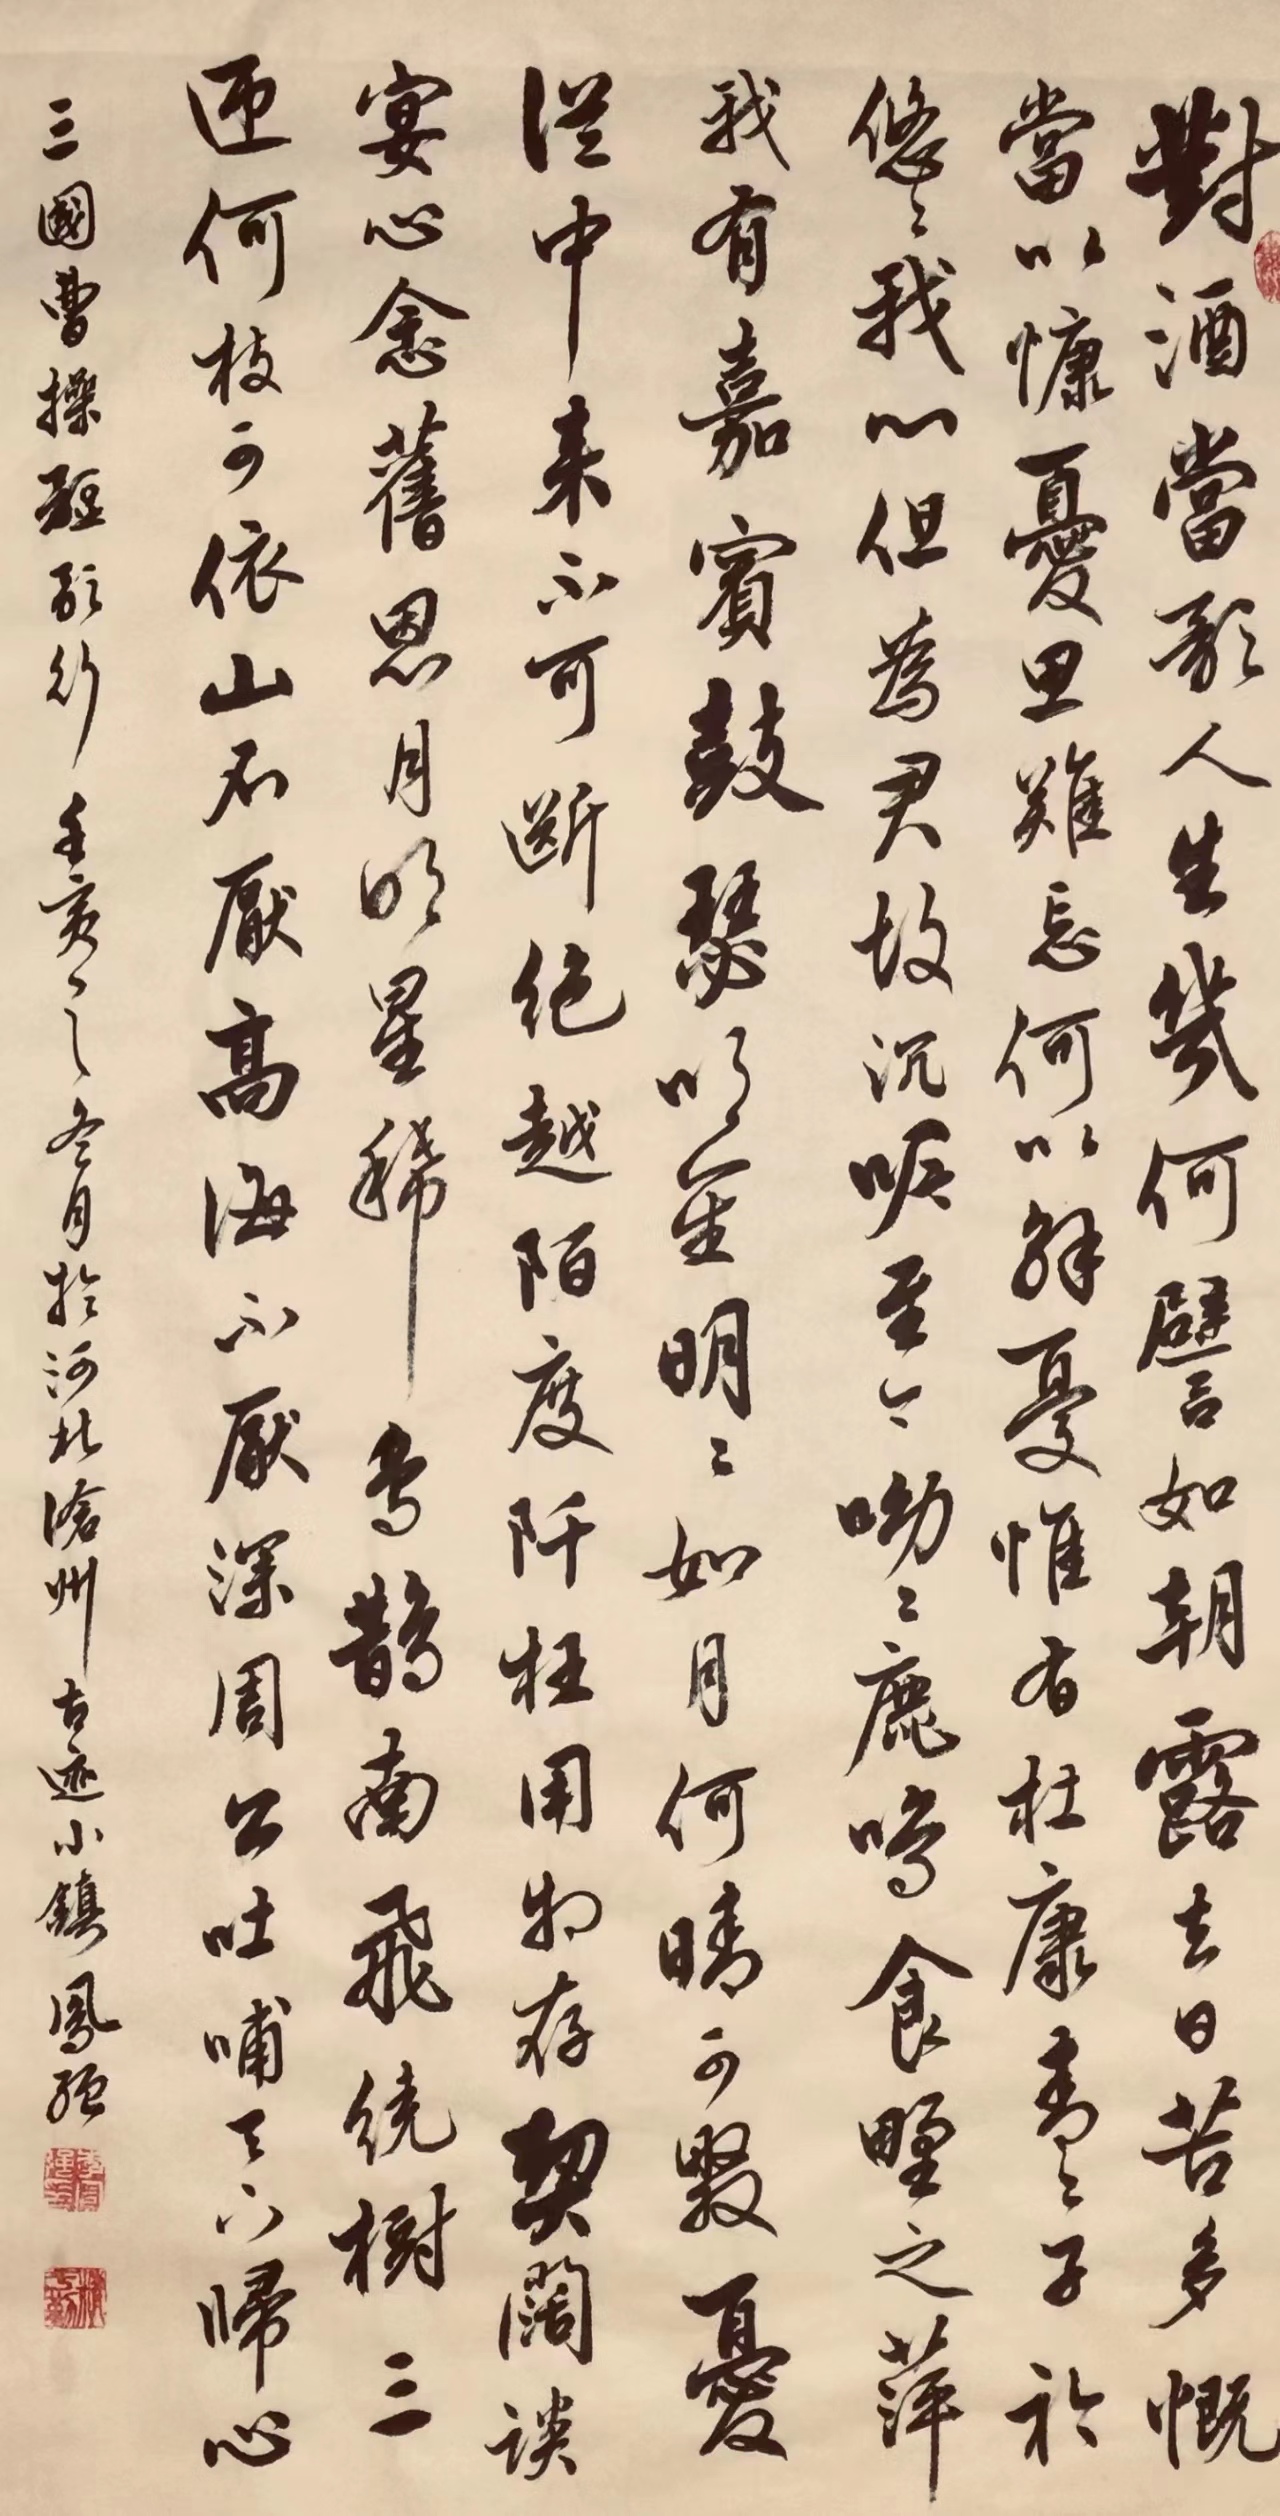 對酒當歌人生幾何譬如朝露去日苦多慨
當以慷憂思難忘何以解憂惟有杜康青〻子衿
悠〻我心但為君故沉吟至今呦〻鹿鳴食野之萍
我有嘉賓鼓瑟吹笙明〻如月何時可掇憂
從中來不可斷絕越陌度阡枉用相存契闊談
宴心念舊恩月明星稀烏鵲南飛繞樹三
匝何枝可依山不厭高海不厭深周公吐哺天下歸心
三國曹操短歌行 之冬月於河北滄州古迹小鎮鳳強